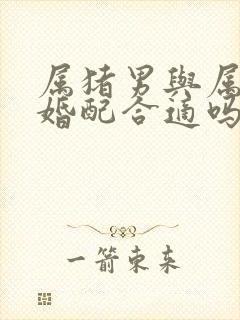 属猪男與属
婚配合適吗
一箭東来